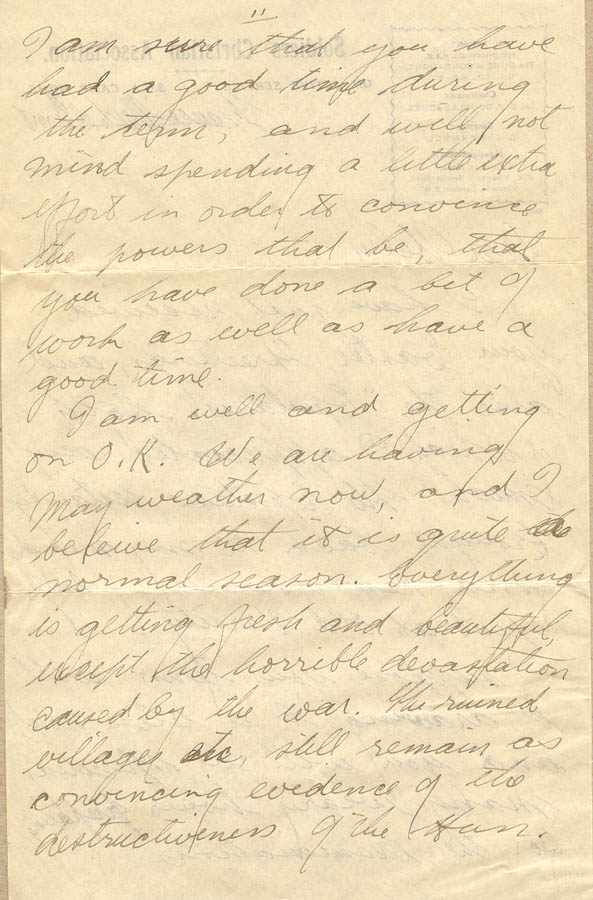 "
I am sure that you have
had a good time during
the term, and will not
mind spending a little extra
effort in order to convence
the powers that be, that
you have done a bit of
work as well as have a
good time.
I am well and getting
on O.K. We are having
May weather now, and I
beleive that it is quite a
normal season. Everything
is getting fresh and beautiful,
except the horrible devastation
caused by the war. The ruined
villages etc, still remain as
convincing evidence of the
destructiveness of the Hun.